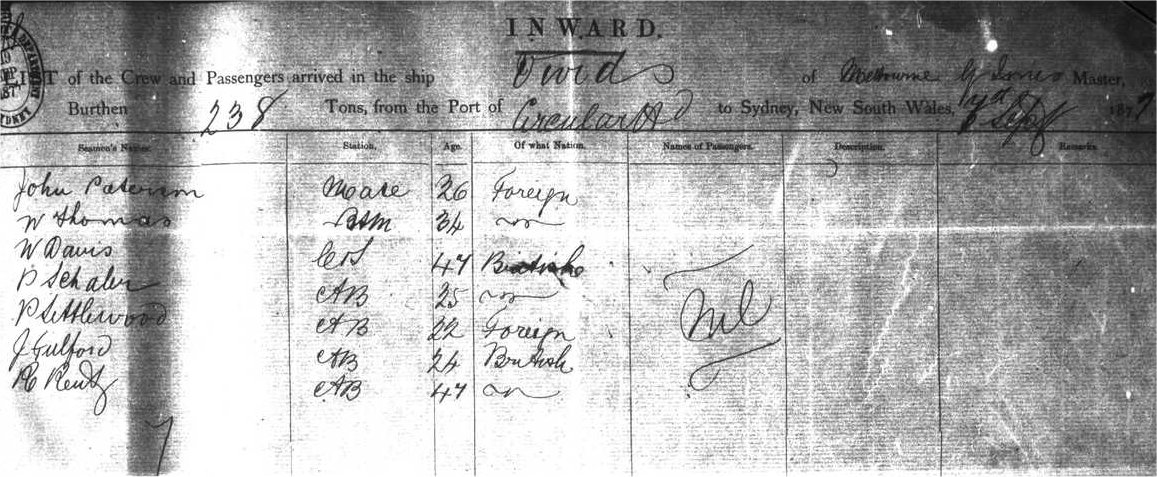 INWARD.
LIST of the Crew and Passengers arrived in the ship Ovid of Melbourne G Jones Master,
Burthen 238 Tons, from the Port of Circular Hd to Sydney, New South Wales, Sept 1877
Seamen's Names. Station. Age. Of what Nation. Names of Passengers. Description. Remarks.
John Paterson Mate 26 Foreign
W Thomas 34 "
W Davis C&S 47 British
P Schaler AB 25 "
P Settlewood AB 22 Foreign
J Gulford AB 24 British
Rentz AB 47 "
Nil
7